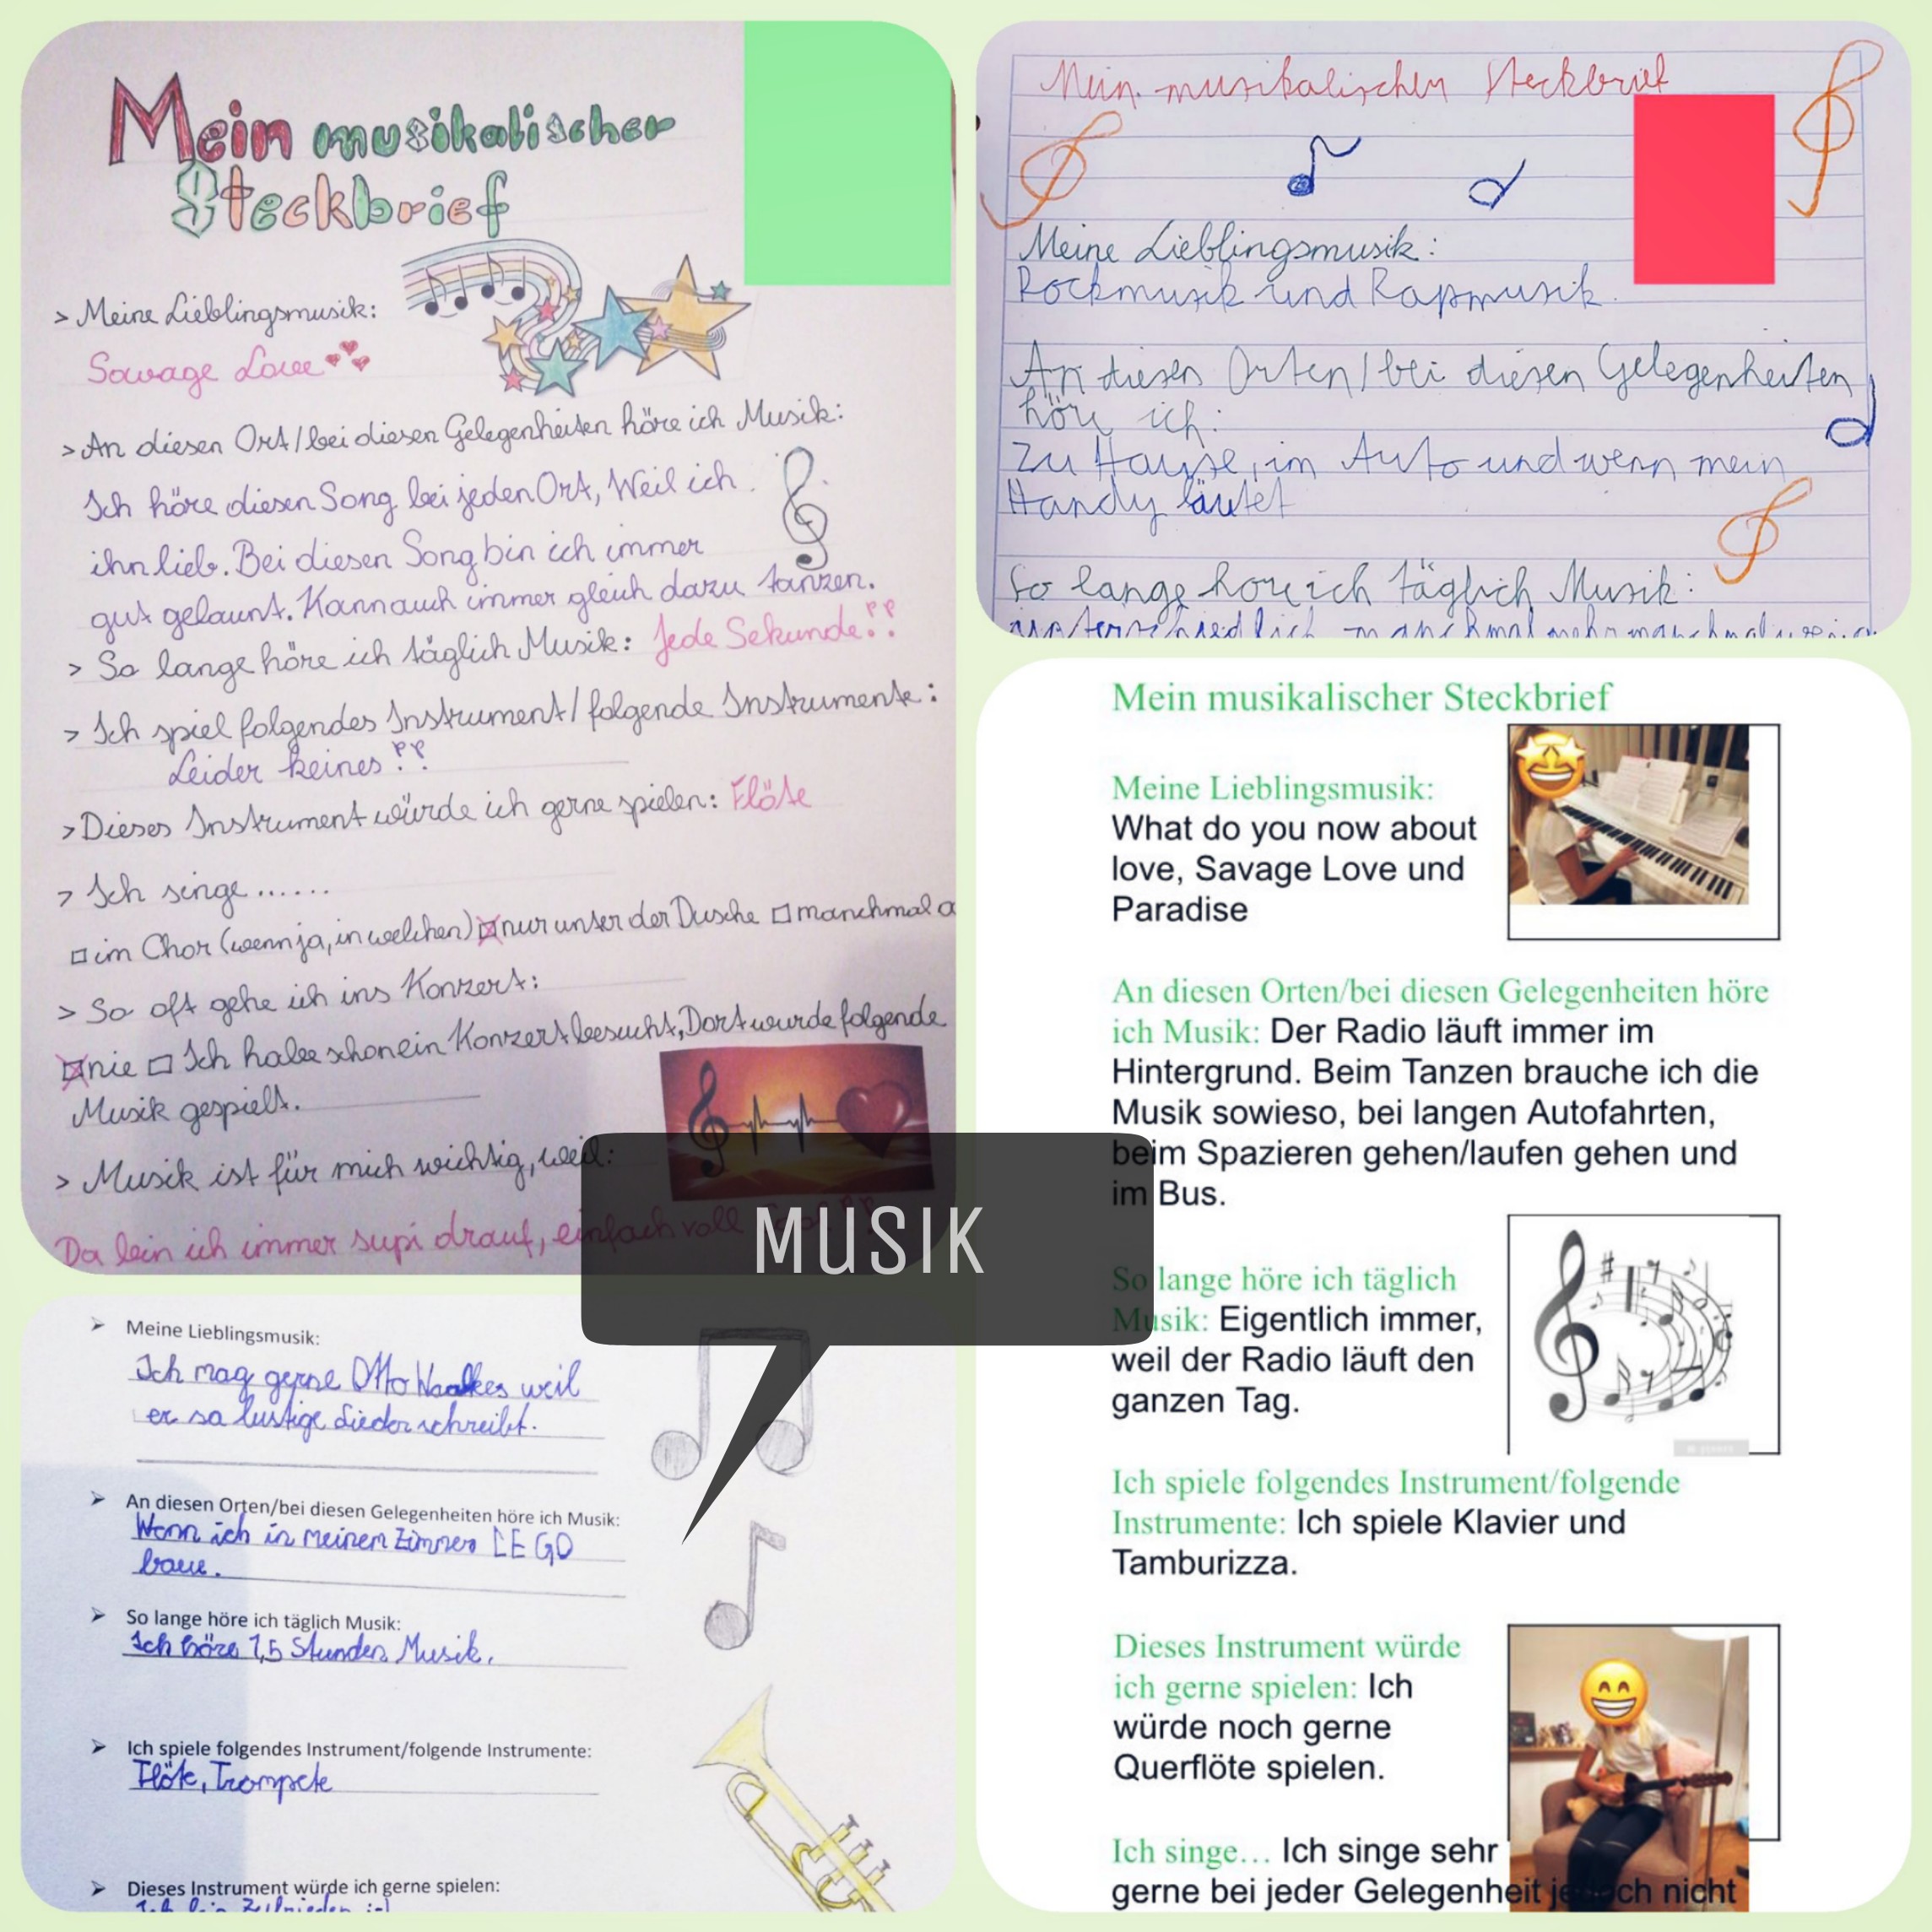 Mein musikalischer
Steckbrief
> Meine Lieblingsmusik:
Savage Love
> An diesen Ort/bei diesen Gelegenheiten höre ich Musik:
Ich höre diesen Song bei jeden Ort, Weil ich
ihn lieb. Bei diesen Song bin ich immer
gut gelaunt. Kann auch immer gleich dazu tanzen.
> So lange höre ich täglich Musik: Jede Sekunde!!
> Ich spiel folgendes Instrument/folgende Instrumente:
Leider keines!!
> Dieses Instrument würde ich gerne spielen: Flöte
> Ich singe......
□ im Chor (wenn ja, in welchen) ☒ nur unter der Dusche □ manchmal a
> So oft gehe ich ins Konzert:
☒ nie □ Ich habe schon ein Konzert besucht, Dort wurde folgende
Musik gespielt.
> Musik ist für mich wichtig, weil:
Da bin ich immer supi drauf, einfach voll
Mein musikalischer Steckbrief
Meine Lieblingsmusik:
Rockmusik und Rapmusik.
An diesen Orten/bei diesen Gelegenheiten
höre ich:
Zu Hause, im Auto und wenn mein
Handy läutet
So lange höre ich täglich Musik:
unterschiedlich manchmal mehr manchmal
MUSIK
➢ Meine Lieblingsmusik:
Ich mag gerne Otto Waalkes weil
er so lustige Lieder schreibt.
➢ An diesen Orten/bei diesen Gelegenheiten höre ich Musik:
Wenn ich in meinem Zimmer LEGO
baue.
➢ So lange höre ich täglich Musik:
Ich höre 1,5 Stunden Musik.
➢ Ich spiele folgendes Instrument/folgende Instrumente:
Flöte, Trompete
➢ Dieses Instrument würde ich gerne spielen:
Ich bin Zufrieden
Mein musikalischer Steckbrief
Meine Lieblingsmusik:
What do you now about
love, Savage Love und
Paradise
An diesen Orten/bei diesen Gelegenheiten höre
ich Musik: Der Radio läuft immer im
Hintergrund. Beim Tanzen brauche ich die
Musik sowieso, bei langen Autofahrten,
beim Spazieren gehen/laufen gehen und
im Bus.
So lange höre ich täglich
Musik: Eigentlich immer,
weil der Radio läuft den
ganzen Tag.
Ich spiele folgendes Instrument/folgende
Instrumente: Ich spiele Klavier und
Tamburizza.
Dieses Instrument würde
ich gerne spielen: Ich
würde noch gerne
Querflöte spielen.
Ich singe... Ich singe sehr
gerne bei jeder Gelegenheit jedoch nicht